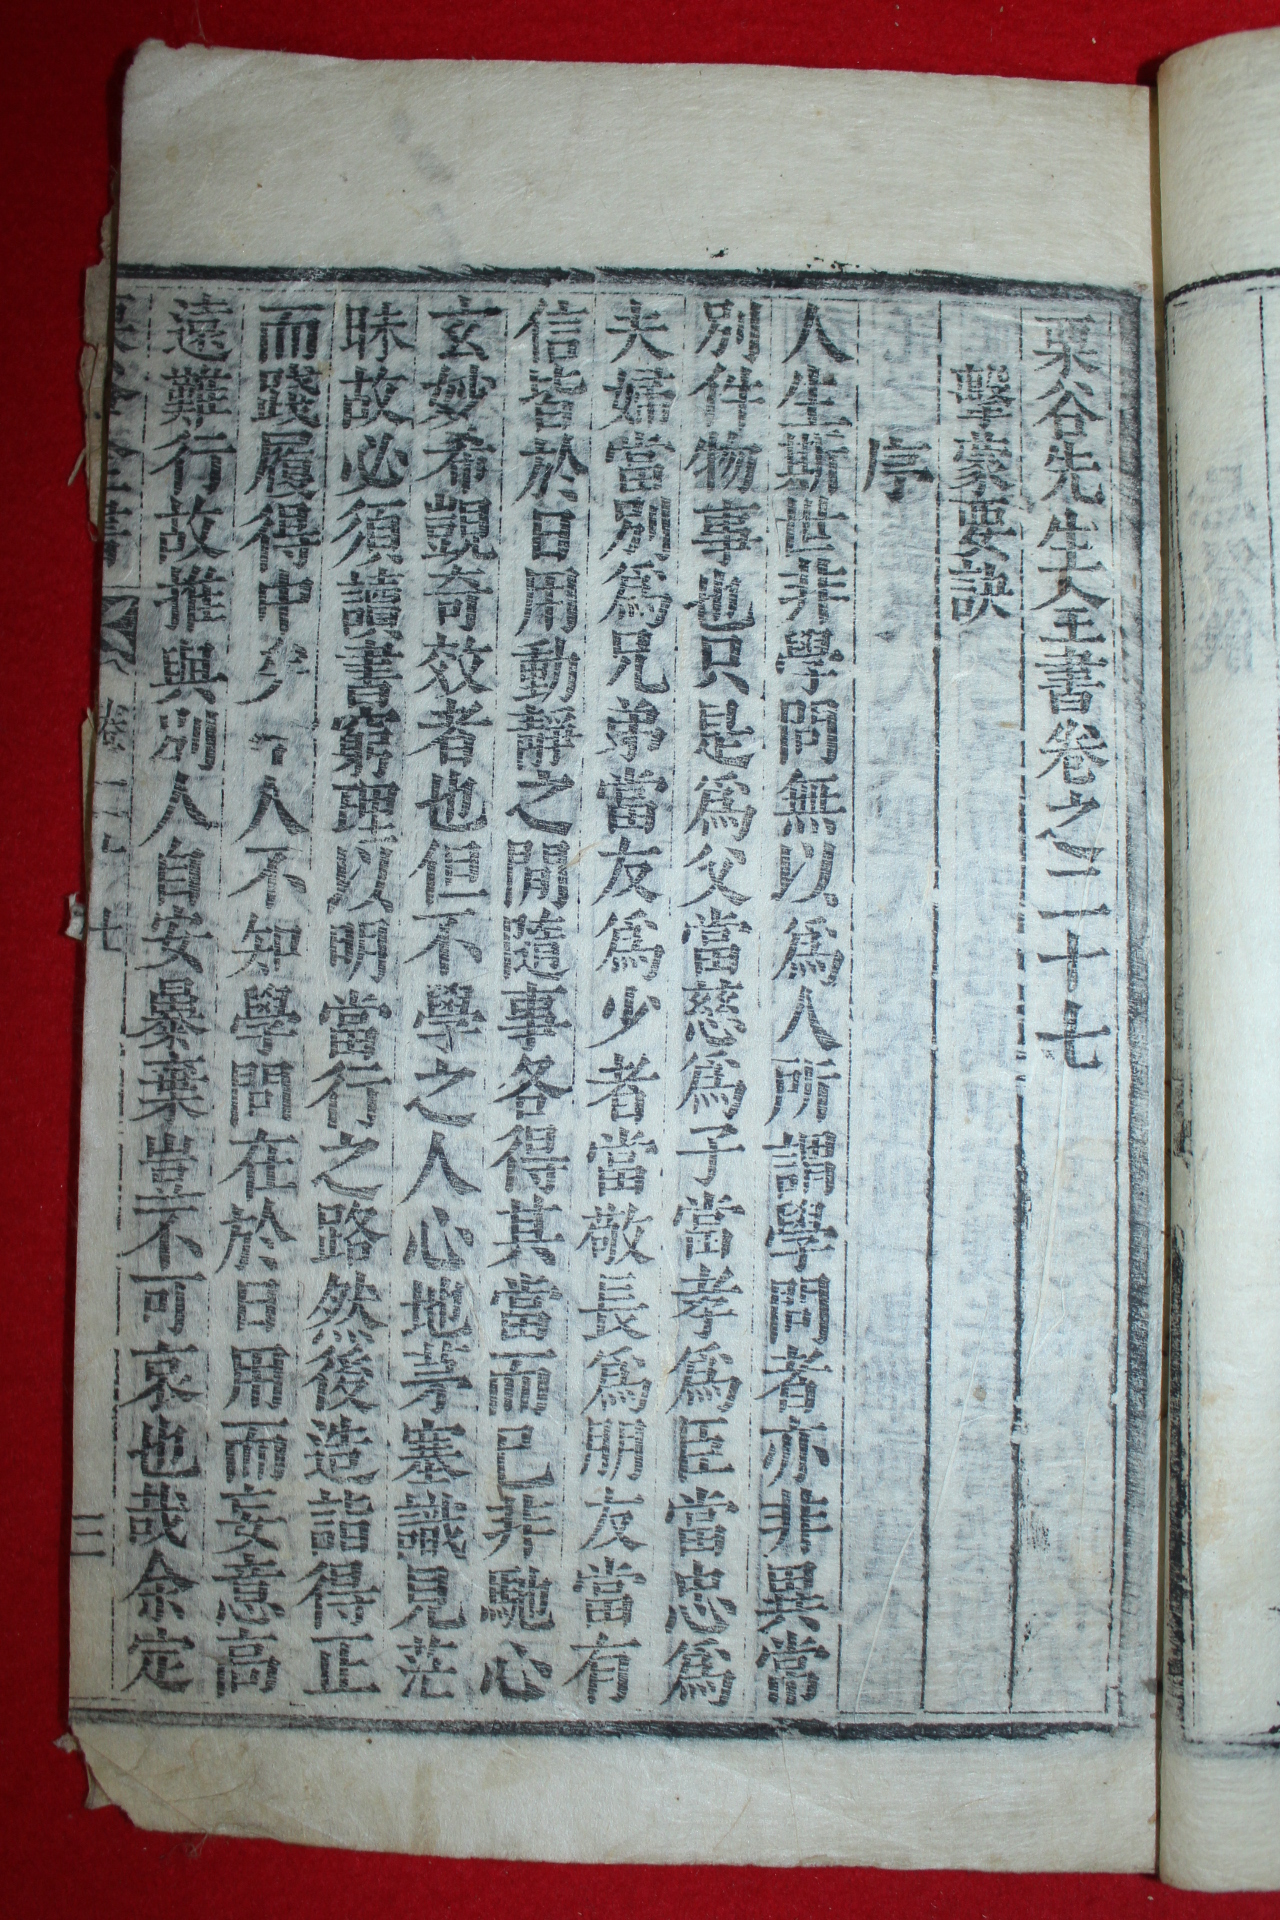 栗谷先生全書卷之二十七
擊蒙要訣
序
人生斯世非學問無以爲人所謂學問者亦非異常
別件物事也只是爲父當慈爲子當孝爲臣當忠爲
夫婦當別爲兄弟當友爲少者當敬長爲朋友當有
信皆於日用動靜之間隨事各得其當而已非馳心
玄妙希覬奇效者也但不學之人心地茅塞識見茫
昧故必須讀書窮理以明當行之路然後造詣得正
而踐履得中矣 人不知學問在於日用而妄意高
遠難行故推與別人自安暴棄豈不可哀也哉余定
全書 卷二十七 三